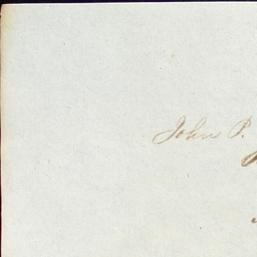 John P.